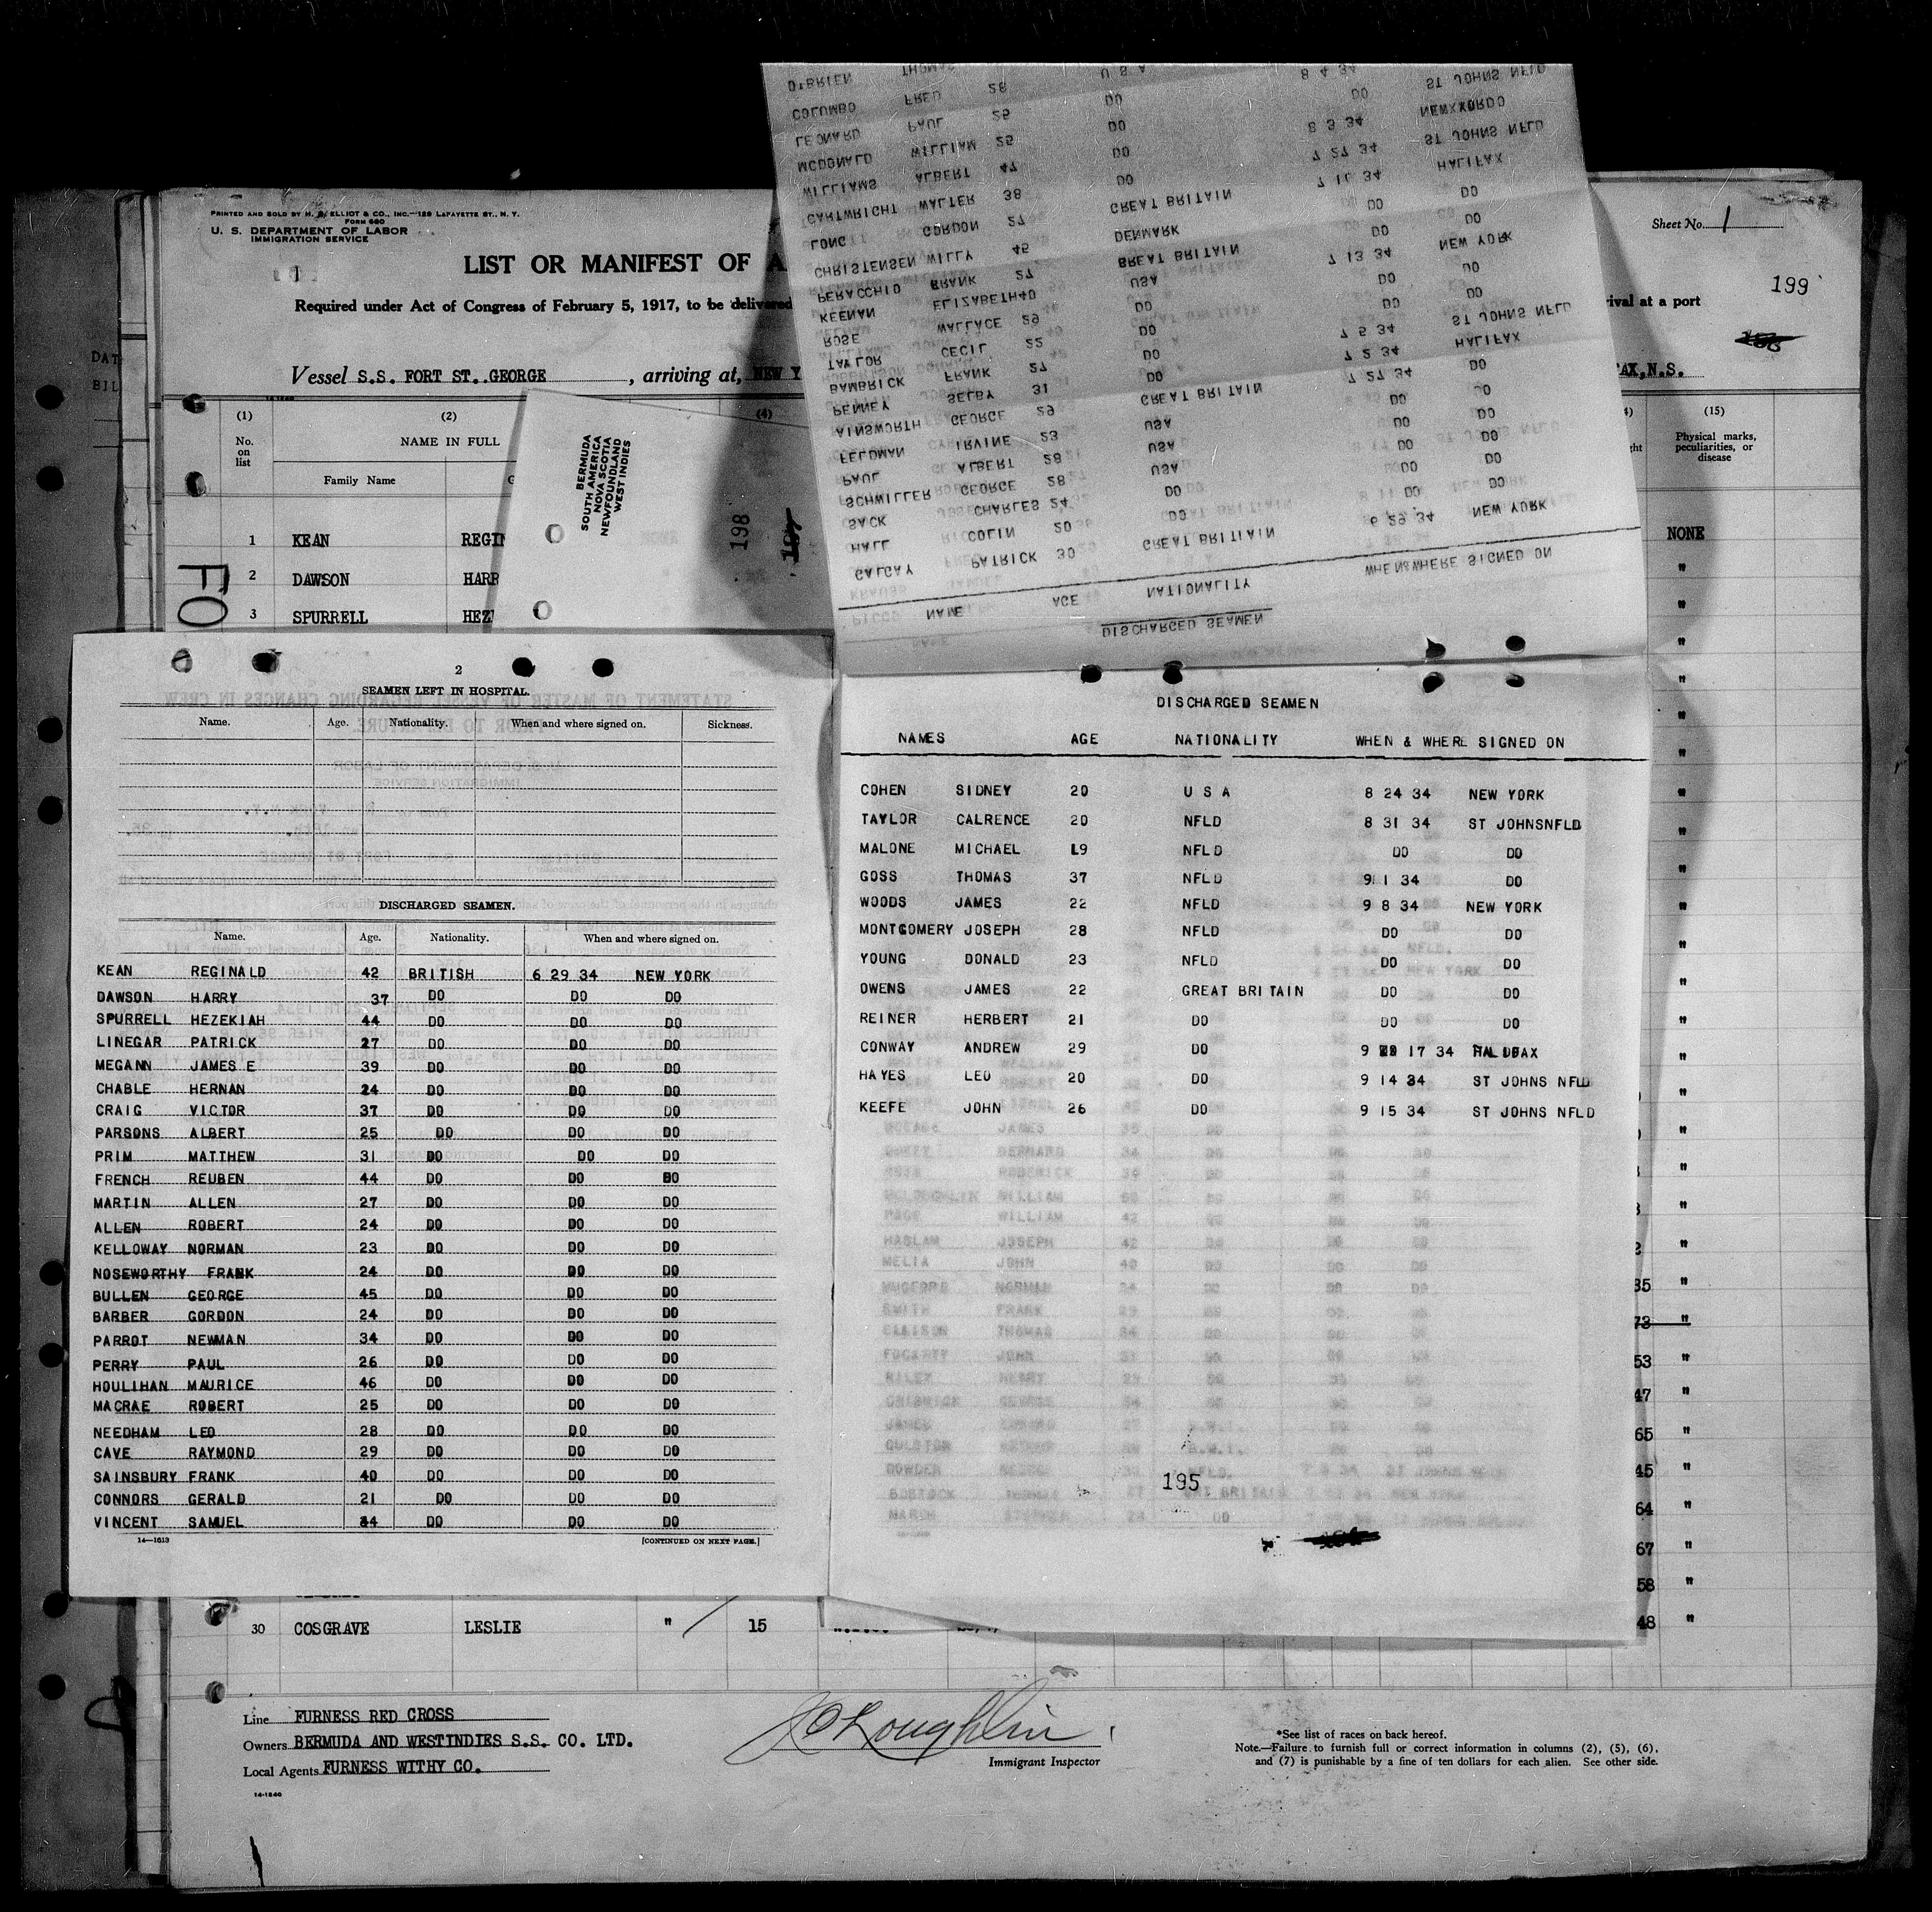 PRINTED AND SOLD BY H. S. ELLIOT & CO., INC.—129 LAFAYETTE ST., N. Y.
FORM 680
U. S. DEPARTMENT OF LABOR
IMMIGRATION SERVICE
Sheet No. 1
LIST OR MANIFEST OF A
199
Required under Act of Congress of February 5, 1917, to be delivered
rival at a port
Vessel S.S. FORT ST. GEORGE , arriving at, NEW Y
AX,N.S.
(1) (2) (4) (15)
No. on list
NAME IN FULL
Family Name
Physical marks, peculiarities, or disease
1 KEAN REGIN NONE
2 DAWSON HARR "
3 SPURRELL HEZI "
FO
BERMUDA
SOUTH AMERICA
NOVA SCOTIA
NEWFOUNDLAND
WEST INDIES
198
DISCHARGED SEAMEN
NAME AGE NATIONALITY WHEN&WHERE SIGNED ON
GALGAY PATRICK 30 GREAT BRITIAIN 6 29 34 NEW YORK
HALL COLIN 20 DO DO DO
SACK CHARLES 24 DO DO DO
SCHWILLER GEORGE 28 USA DO DO
PAUL ALBERT 28 USA DO DO
FELDMAN IRVINE 23 USA DO DO
AINSWORTH GEORGE 29 GREAT BRITAIN 7 27 34 DO
PENNEY SELBY 31 DO 7 2 34 HALIFAX
BAMBRICK FRANK 27 DO 7 5 34 ST JOHNS NFLD
TAYLOR CECIL 22 DO DO DO
ROSE WALLACE 29 DO DO DO
KEENAN ELIZABETH40 USA 7 13 34 NEW YORK
PERACCHIO FRANK 27 BREAT BRITAIN DO DO
CHRISTENSEN WILLY 45 DENMARK DO DO
LONG GORDON 27 GREAT BRITAIN 7 16 34 HALIFAX
CARTWRIGHT WALTER 38 DO 7 27 34 ST JOHNS NFLD
WILLIAMS ALBERT 47 DO 8 3 34 NEWXYORDO
MCDONALD WILLIAM 25 DO DO
LEONARD PAUL 25 DO
COLUMBO FRED 28 DO 8 4 34 ST JOHNS NFLD
O'BRIEN THOMAS U S A
2
SEAMEN LEFT IN HOSPITAL.
Name. Age. Nationality. When and where signed on. Sickness.
DISCHARGED SEAMEN.
Name. Age. Nationality. When and where signed on.
KEAN REGINALD 42 BRITISH 6 29 34 NEW YORK
DAWSON HARRY 37 DO DO DO
SPURRELL HEZEKIAH 44 DO DO DO
LINEGAR PATRICK 27 DO DO DO
MEGANN JAMES E 39 DO DO DO
CHABLE HERNAN 24 DO DO DO
CRAIG VICTOR 37 DO DO DO
PARSONS ALBERT 25 DO DO DO
PRIM MATTHEW 31 DO DO DO
FRENCH REUBEN 44 DO DO DO
MARTIN ALLEN 27 DO DO DO
ALLEN ROBERT 24 DO DO DO
KELLOWAY NORMAN 23 DO DO DO
NOSEWORTHY FRANK 24 DO DO DO
BULLEN GEORGE 45 DO DO DO
BARBER GORDON 24 DO DO DO
PARROT NEWMAN 34 DO DO DO
PERRY PAUL 26 DO DO DO
HOULIHAN MAURICE 46 DO DO DO
MACRAE ROBERT 25 DO DO DO
NEEDHAM LEO 28 DO DO DO
CAVE RAYMOND 29 DO DO DO
SAINSBURY FRANK 40 DO DO DO
CONNORS GERALD 21 DO DO DO
VINCENT SAMUEL 34 DO DO DO
14—1613 [CONTINUED ON NEXT PAGE.]
DISCHARGED SEAMEN
NAMES AGE NATIONALITY WHEN & WHERE SIGNED ON
COHEN SIDNEY 20 U S A 8 24 34 NEW YORK
TAYLOR CALRENCE 20 NFLD 8 31 34 ST JOHNSNFLD
MALONE MICHAEL L9 NFLD DO DO
GOSS THOMAS 37 NFLD 9 1 34 DO
WOODS JAMES 22 NFLD 9 8 34 NEW YORK
MONTGOMERY JOSEPH 28 NFLD DO DO
YOUNG DONALD 23 NFLD DO DO
OWENS JAMES 22 GREAT BRITAIN DO DO
REINER HERBERT 21 DO DO DO
CONWAY ANDREW 29 DO 9 17 34 HALIFAX
HAYES LEO 20 DO 9 14 34 ST JOHNS NFLD
KEEFE JOHN 26 DO 9 15 34 ST JOHNS NFLD
195
35 "
73 "
53 "
47 "
65 "
45 "
64 "
67 "
58 "
48 "
30 COSGRAVE LESLIE " 15
Line FURNESS RED CROSS
Owners BERMUDA AND WESTINDIES S.S. CO. LTD.
Local Agents FURNESS WITHY CO.
14-1240
Immigrant Inspector
*See list of races on back hereof.
Note.—Failure to furnish full or correct information in columns (2), (5), (6), and (7) is punishable by a fine of ten dollars for each alien. See other side.